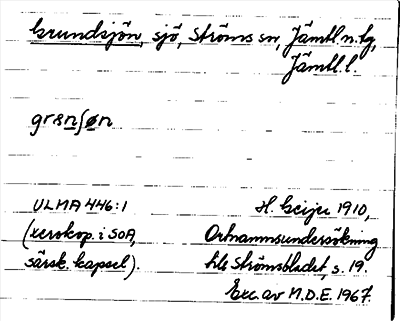 Grundsjön, sjö, Ströms sn, Jämtl. n. tg,
Jämtl. l.
grɛnʃøn
ULMA 446:1 H. Geijer 1910,
(xerokop. i SOA, Ortnamnsundersökning
särsk. kapsel). bl. Strömsbladet, s. 19.
Exc. av M.D.E. 1967.